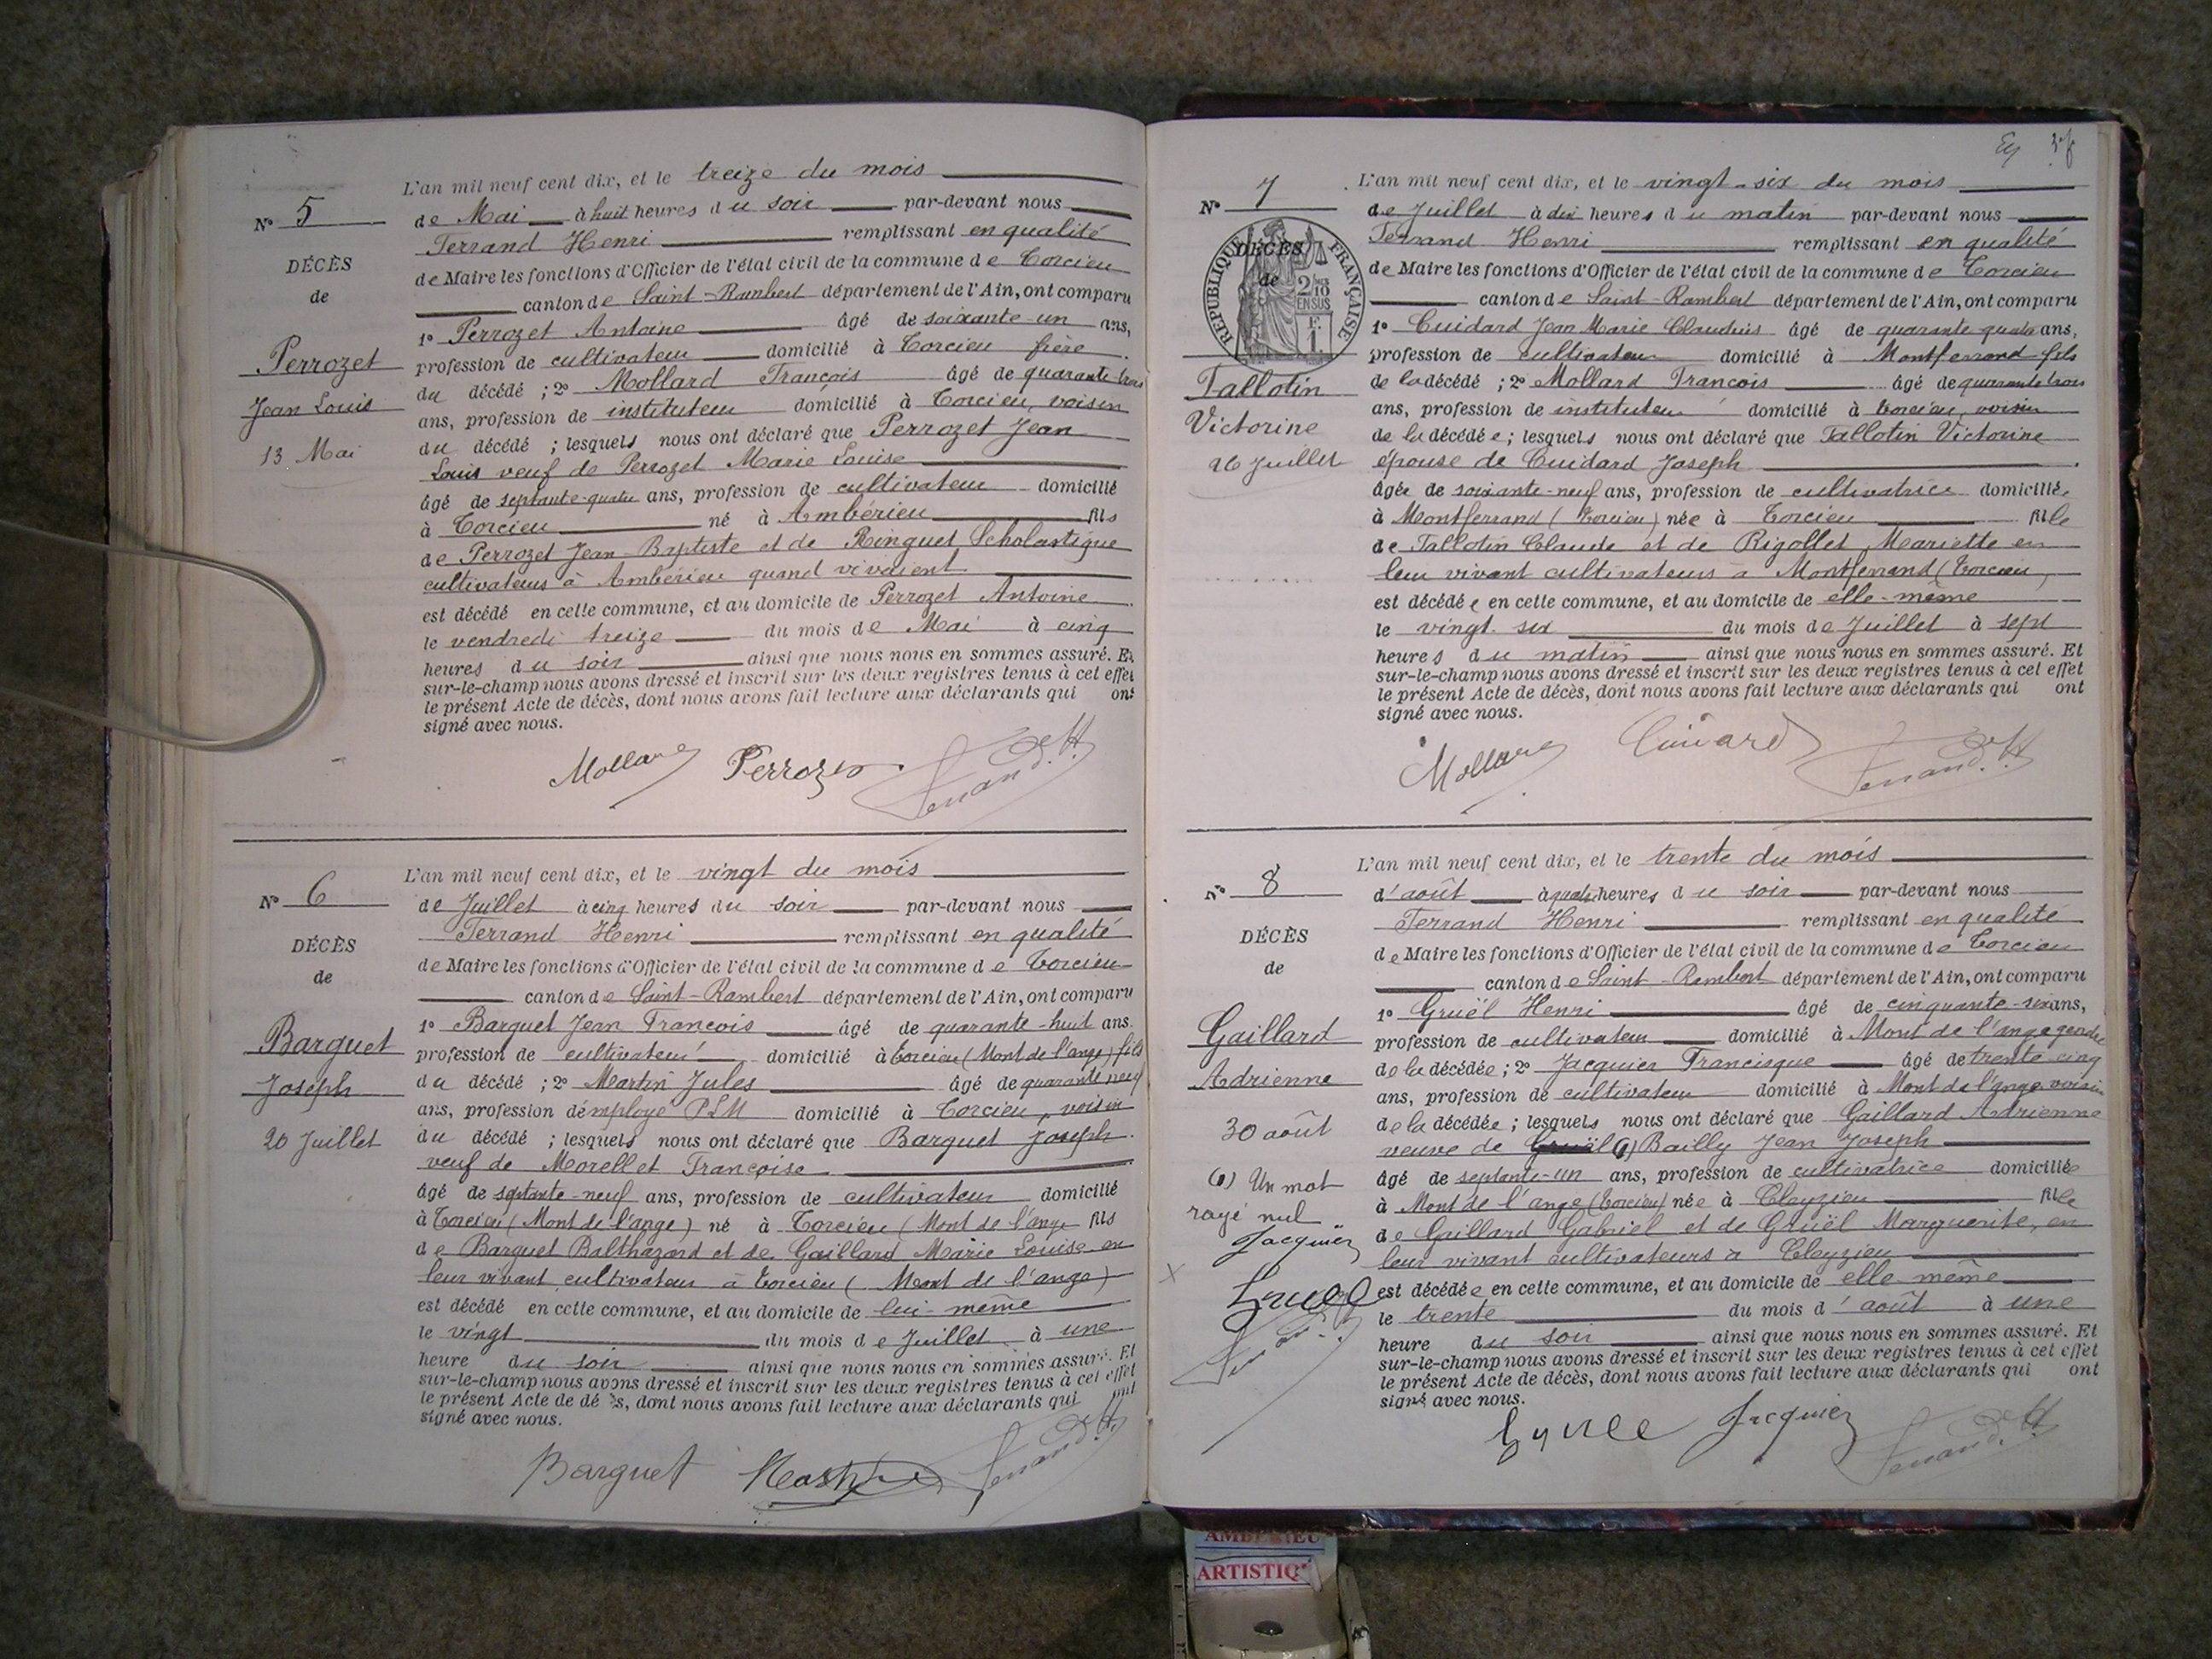 L'an mil neuf cent dix, et le treize du mois
N° 5
de Mai à huit heures du soir par-devant nous
Ferrand Henri remplissant en qualité
DÉCÈS
de Maire les fonctions d'Officier de l'état civil de la commune de Torcieu
de
canton de Saint-Rambert département de l'Ain, ont comparu
1° Perrozet Antoine âgé de soixante-un ans,
Perrozet
profession de cultivateur domicilié à Torcieu frère
du décédé ; 2° Mollard François âgé de quarante trois
Jean Louis
ans, profession de instituteur domicilié à Torcieu, voisin
13 Mai
du décédé ; lesquels nous ont déclaré que Perrozet Jean
Louis veuf de Perrozet Marie Louise
âgé de septante-quatre ans, profession de cultivateur domicilié
à Torcieu né à Ambérieu fils
de Perrozet Jean-Baptiste et de Ringuet Scholastique
cultivateurs à Ambérieu quand vivaient
est décédé en cette commune, et au domicile de Perrozet Antoine
le vendredi treize du mois de Mai à cinq
heures du soir ainsi que nous nous en sommes assuré. Et
sur-le-champ nous avons dressé et inscrit sur les deux registres tenus à cet effet
le présent Acte de décès, dont nous avons fait lecture aux déclarants qui ont
signé avec nous.
Mollard Perrozet Ferrand H
L'an mil neuf cent dix, et le vingt du mois
N° 6
de Juillet à cinq heures du soir par-devant nous
Ferrand Henri remplissant en qualité
DÉCÈS
de Maire les fonctions d'Officier de l'état civil de la commune de Torcieu
de
canton de Saint-Rambert département de l'Ain, ont comparu
1° Barquet Jean François âgé de quarante-huit ans
Barquet
profession de cultivateur domicilié à Torcieu (Mont de l'ange) fils
Joseph
du décédé ; 2° Martin Jules âgé de quarante neuf
ans, profession d'employé PLM domicilié à Torcieu, voisin
20 Juillet
du décédé ; lesquels nous ont déclaré que Barquet Joseph
veuf de Morellet Françoise
âgé de septante-neuf ans, profession de cultivateur domicilié
à Torcieu (Mont de l'ange) né à Torcieu (Mont de l'ange fils
de Barquet Balthazard et de Gaillard Marie Louise en
leur vivant cultivateurs à Torcieu (Mont de l'ange)
est décédé en cette commune, et au domicile de lui-même
le vingt du mois de Juillet à une
heure du soir ainsi que nous nous en sommes assuré. Et
sur-le-champ nous avons dressé et inscrit sur les deux registres tenus à cet effet
le présent Acte de décès, dont nous avons fait lecture aux déclarants qui ont
signé avec nous.
Barquet Martin Ferrand H
L'an mil neuf cent dix, et le vingt-six du mois
N° 7
de Juillet à dix heures du matin par-devant nous
Ferrand Henri remplissant en qualité
DÉCÈS
de
RÉPUBLIQUE FRANÇAISE
2/10 EN SUS
F. 1.
de Maire les fonctions d'Officier de l'état civil de la commune de Torcieu
canton de Saint-Rambert département de l'Ain, ont comparu
1° Cuidard Jean Marie Claudius âgé de quarante quatre ans,
profession de cultivateur domicilié à Montferrand fils
Tallotin
de la décédé ; 2° Mollard François âgé de quarante trois
ans, profession de instituteur domicilié à Torcieu, voisin
Victorine
de la décédée ; lesquels nous ont déclaré que Tallotin Victorine
26 Juillet
épouse de Cuidard Joseph
âgée de soixante-neuf ans, profession de cultivatrice domiciliée
à Montferrand (Torcieu) née à Torcieu fille
de Tallotin Claude et de Rigollet Mariette en
leur vivant cultivateurs à Montferrand (Torcieu)
est décédée en cette commune, et au domicile de elle-même
le vingt-six du mois de Juillet à sept
heures du matin ainsi que nous nous en sommes assuré. Et
sur-le-champ nous avons dressé et inscrit sur les deux registres tenus à cet effet
le présent Acte de décès, dont nous avons fait lecture aux déclarants qui ont
signé avec nous.
Mollard Cuidard Ferrand H
L'an mil neuf cent dix, et le trente du mois
N° 8
d'août à quatre heures du soir par-devant nous
Ferrand Henri remplissant en qualité
DÉCÈS
de Maire les fonctions d'Officier de l'état civil de la commune de Torcieu
de
canton de Saint-Rambert département de l'Ain, ont comparu
1° Gruël Henri âgé de cinquante-six ans,
Gaillard
profession de cultivateur domicilié à Mont de l'ange gendre
de la décédée ; 2° Jacquier Francisque âgé de trente cinq
Adrienne
ans, profession de cultivateur domicilié à Mont de l'ange voisin
30 août
de la décédée ; lesquels nous ont déclaré que Gaillard Adrienne
veuve de Gruël (1) Bailly Jean Joseph
(1) Un mot
rayé nul
âgé de septante-un ans, profession de cultivatrice domiciliée
à Mont de l'ange (Torcieu) née à Cleyzieu fille
de Gaillard Gabriel et de Gruël Marguerite, en
Jacquier
leur vivant cultivateurs à Cleyzieu
Gruel
est décédée en cette commune, et au domicile de elle même
le trente du mois d'août à une
heure du soir ainsi que nous nous en sommes assuré. Et
sur-le-champ nous avons dressé et inscrit sur les deux registres tenus à cet effet
le présent Acte de décès, dont nous avons fait lecture aux déclarants qui ont
signé avec nous.
Gruel Jacquier Ferrand H
AMBERIEU
ARTISTIQ